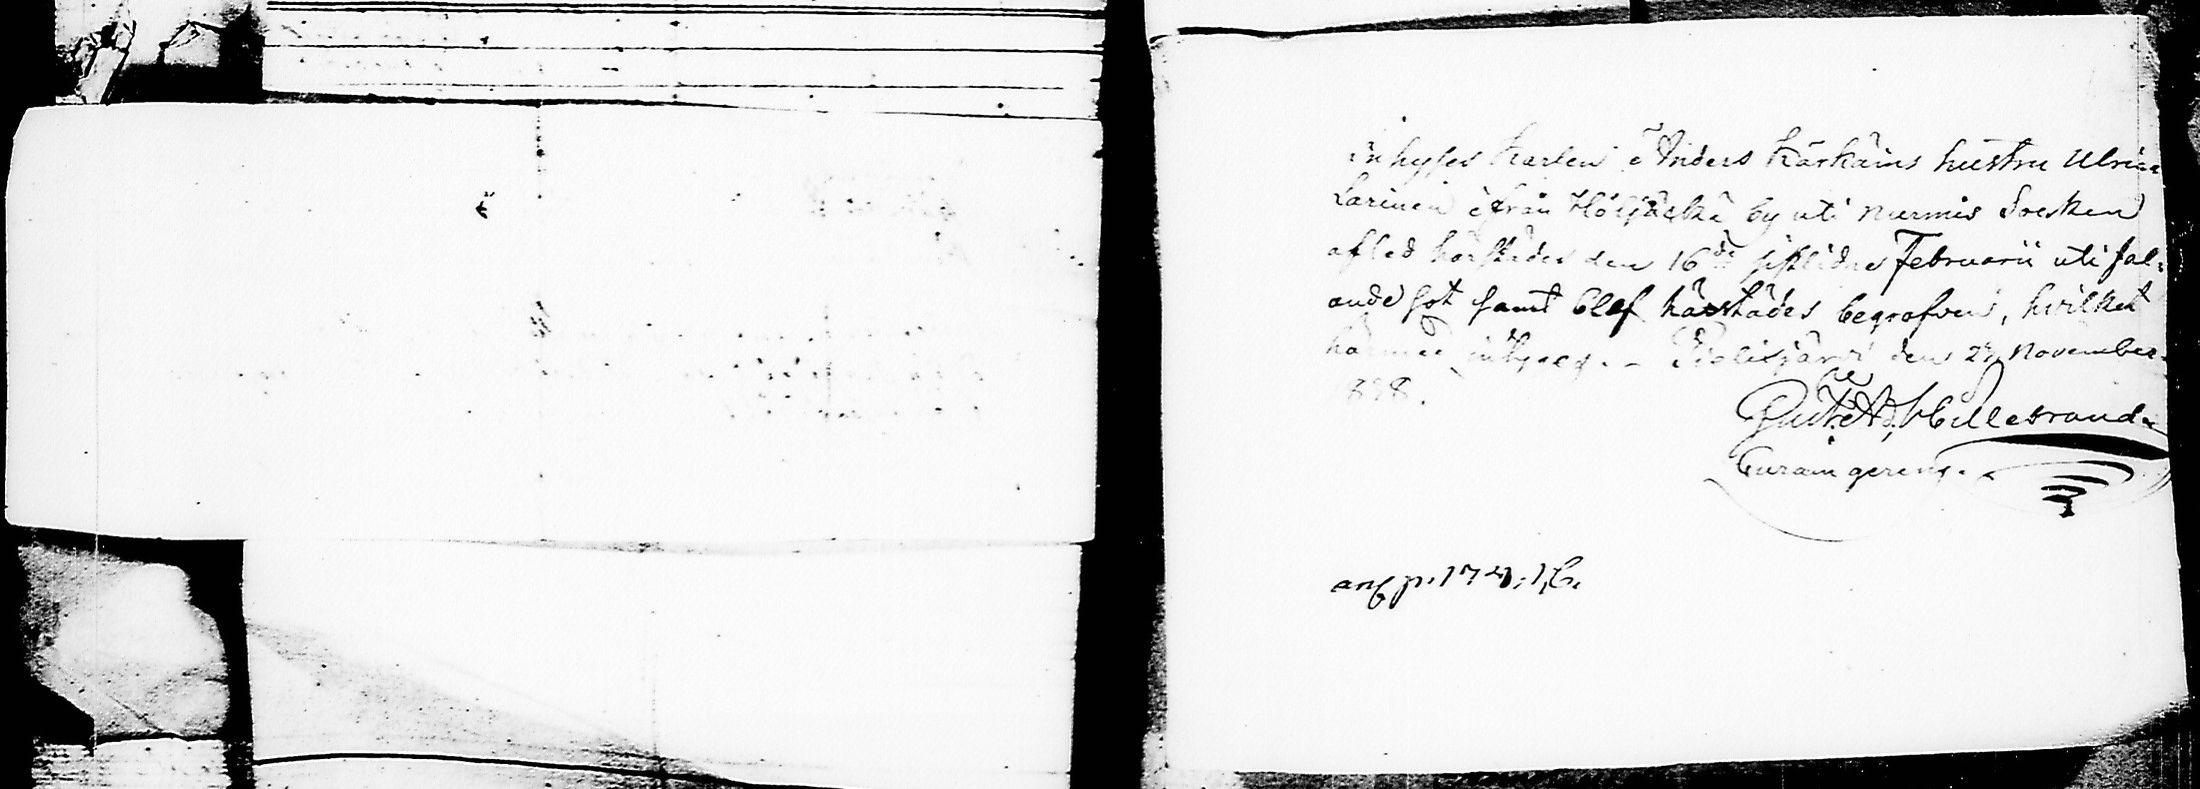 Inhyses Karlen Anders Kärkäins hustru Ulrica
Larinen ifrån Höljäckä by uti Nurmis Socken
afled härstädes den 16de sistlidne Februarii uti fal-
ande sot samt blef härstädes begrafven, hvilket
härmed intygas. - Pielisjärvi den 27 November
1838.
Gust. Ad. Hillebrand
Curam gerens.
anf p. 174, 1, C.